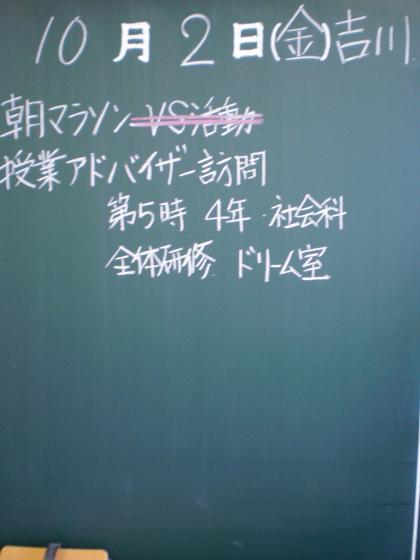 10月2日(金)吉川
朝マラソン VS活動
授業アドバイザー訪問
第5時 4年 社会科
全体研修 ドリーム室